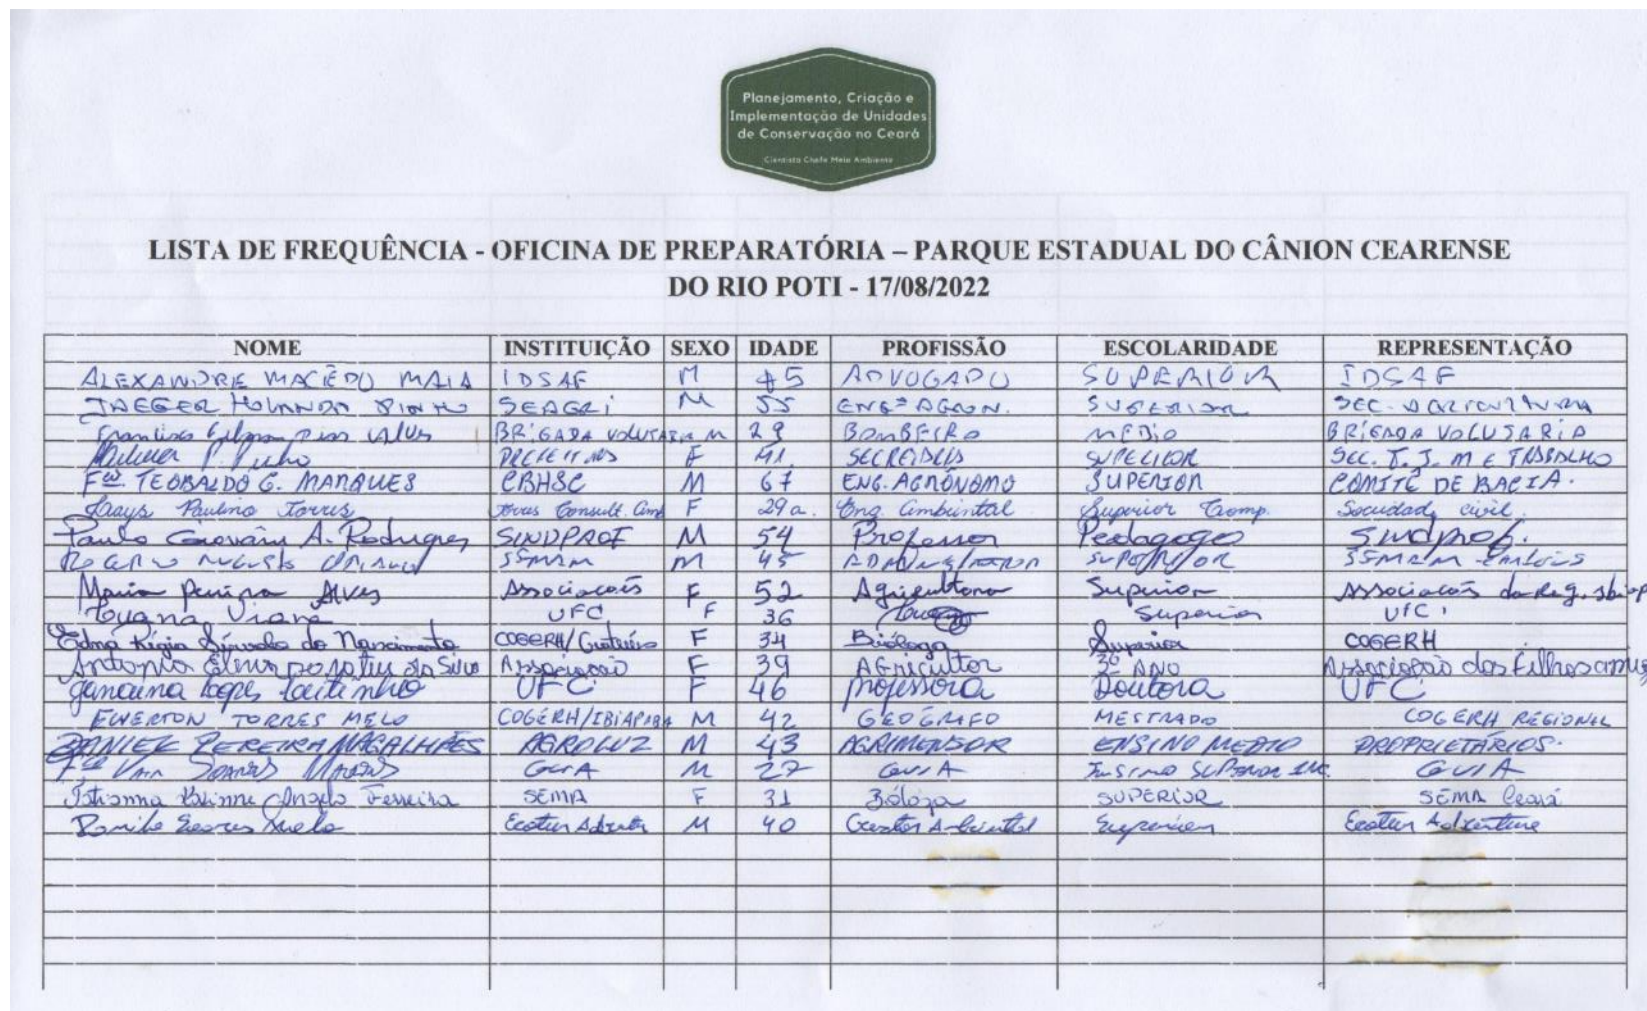 Planejamento, Criação e
Implementação de Unidades
de Conservação no Ceará
Cientista Chefe Meio Ambiente
LISTA DE FREQUÊNCIA - OFICINA DE PREPARATÓRIA – PARQUE ESTADUAL DO CÂNION CEARENSE
DO RIO POTI - 17/08/2022
NOME INSTITUIÇÃO SEXO IDADE PROFISSÃO ESCOLARIDADE REPRESENTAÇÃO
ALEXANDRE MACÊDO MAIA IDSAF M 45 ADVOGADO SUPERIOR IDSAF
JAEGER HOLANDA SEAGRI M 55 ENGº AGRON. SUPERIOR SEC. AGRICULTURA
Francisco Dias Alves BRIGADA VOLUTARIA M 29 BOMBEIRO MEDIO BRIGADA VOLUTARIA
F 41 SUPERIOR SEC. T. J. M E TRABALHO
Fco TEOBALDO G. MARQUES CBHSC M 67 ENG. AGRÔNOMO SUPERIOR COMITÊ DE BACIA.
Paulino Torres Torres Consult. Amb F 29 a. Eng. Ambiental Superior Comp. Sociedade civil.
Paulo Giovani A. Rodrigues SINDPROF M 54 Professor Pedagogo Sindprof.
M 45 ADMINISTRADOR SUPERIOR
Maria Pereira Alves Associacoês F 52 Agricultora Superior Associacoês da Reg.
Luana Viana UFC F 36 Superior UFC
Edna Régia do Nascimento COGERH/Crateús F 34 Bióloga Superior COGERH
Antonia da Silva Associação F 39 Agricultor 3º ANO Associação dos Filhos
Janaina Lopes Leitinho UFC F 46 professora Doutora UFC
EWERTON TORRES MELO COGERH/IBIAPABA M 42 GEÓGRAFO MESTRADO COGERH REGIONAL
DANIEL PEREIRA MAGALHÃES AGROLUZ M 43 AGRIMENSOR ENSINO MEDIO PROPRIETÁRIOS.
GUIA M 27 GUIA ENSINO SUPERIOR INC. GUIA
Tatianna Karinne Angelo Ferreira SEMA F 31 Bióloga SUPERIOR SEMA Ceará
Soares Melo Ecotur M 40 Gestor Ambiental Superior Ecotur Adventure